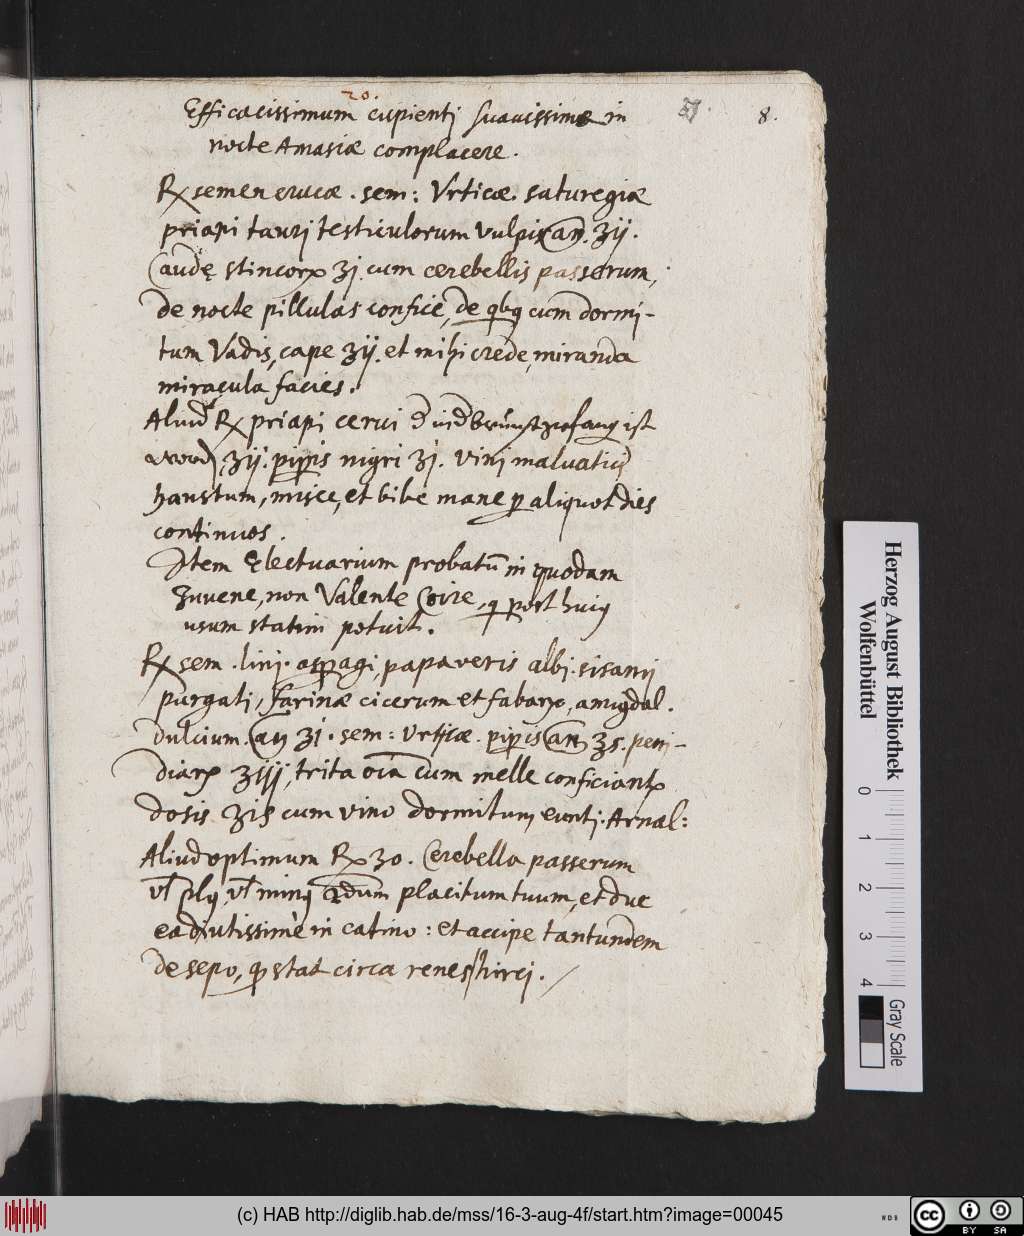 20.
Efficacissimum cupientj suauissime in
nocte Amasiæ complacere.
57. 8.
℞ semen erucæ. sem: Vrticæ. saturegiæ
priapi taurj testiculorum vulpis an. ʒij.
Caudę stincorꝝ ʒj. cum cerebellis passerum,
de nocte pillulas conficé, de qbꝫ cum dormi-
tum Vadis, cape ʒij. et mihi crede, miranda
miracula facies.
Aliud ℞ priapi cerui ist
ʒij. pip̱is nigri ʒj. vinj maluaticj
haustum, misce, et bibe mane ꝑ aliquot dies
continuos.
Item Electuarium probatū in quodam
Iuuene, non Valente Coire, q post huiꝰ
usum statim potuit.
℞ sem. linj. asꝑagi, papaveris albj. sisamj
purgati, farinæ cicerum et fabarꝝ, amigdal.
dulcium. an ʒi. sem: vrticæ. pip̱is an ʒs. penj-
diarꝝ ʒiij, trita oia cum melle conficiantr
dosis ʒis cum vino dormitum euntj. Arnal:
Aliud optimum ℞ 30. Cerebella passerum
vl plꝰ vl minꝰ scdum placitum tuum, et duc
ea diutissimè in catino: et accipe tantundem
de sepo, qd stat circa renes hircj.
Herzog August Bibliothek
Wolfenbüttel
0 1 2 3 4
Gray Scale
(c) HAB http://diglib.hab.de/mss/16-3-aug-4f/start.htm?image=00045
WDB
cc BY SA